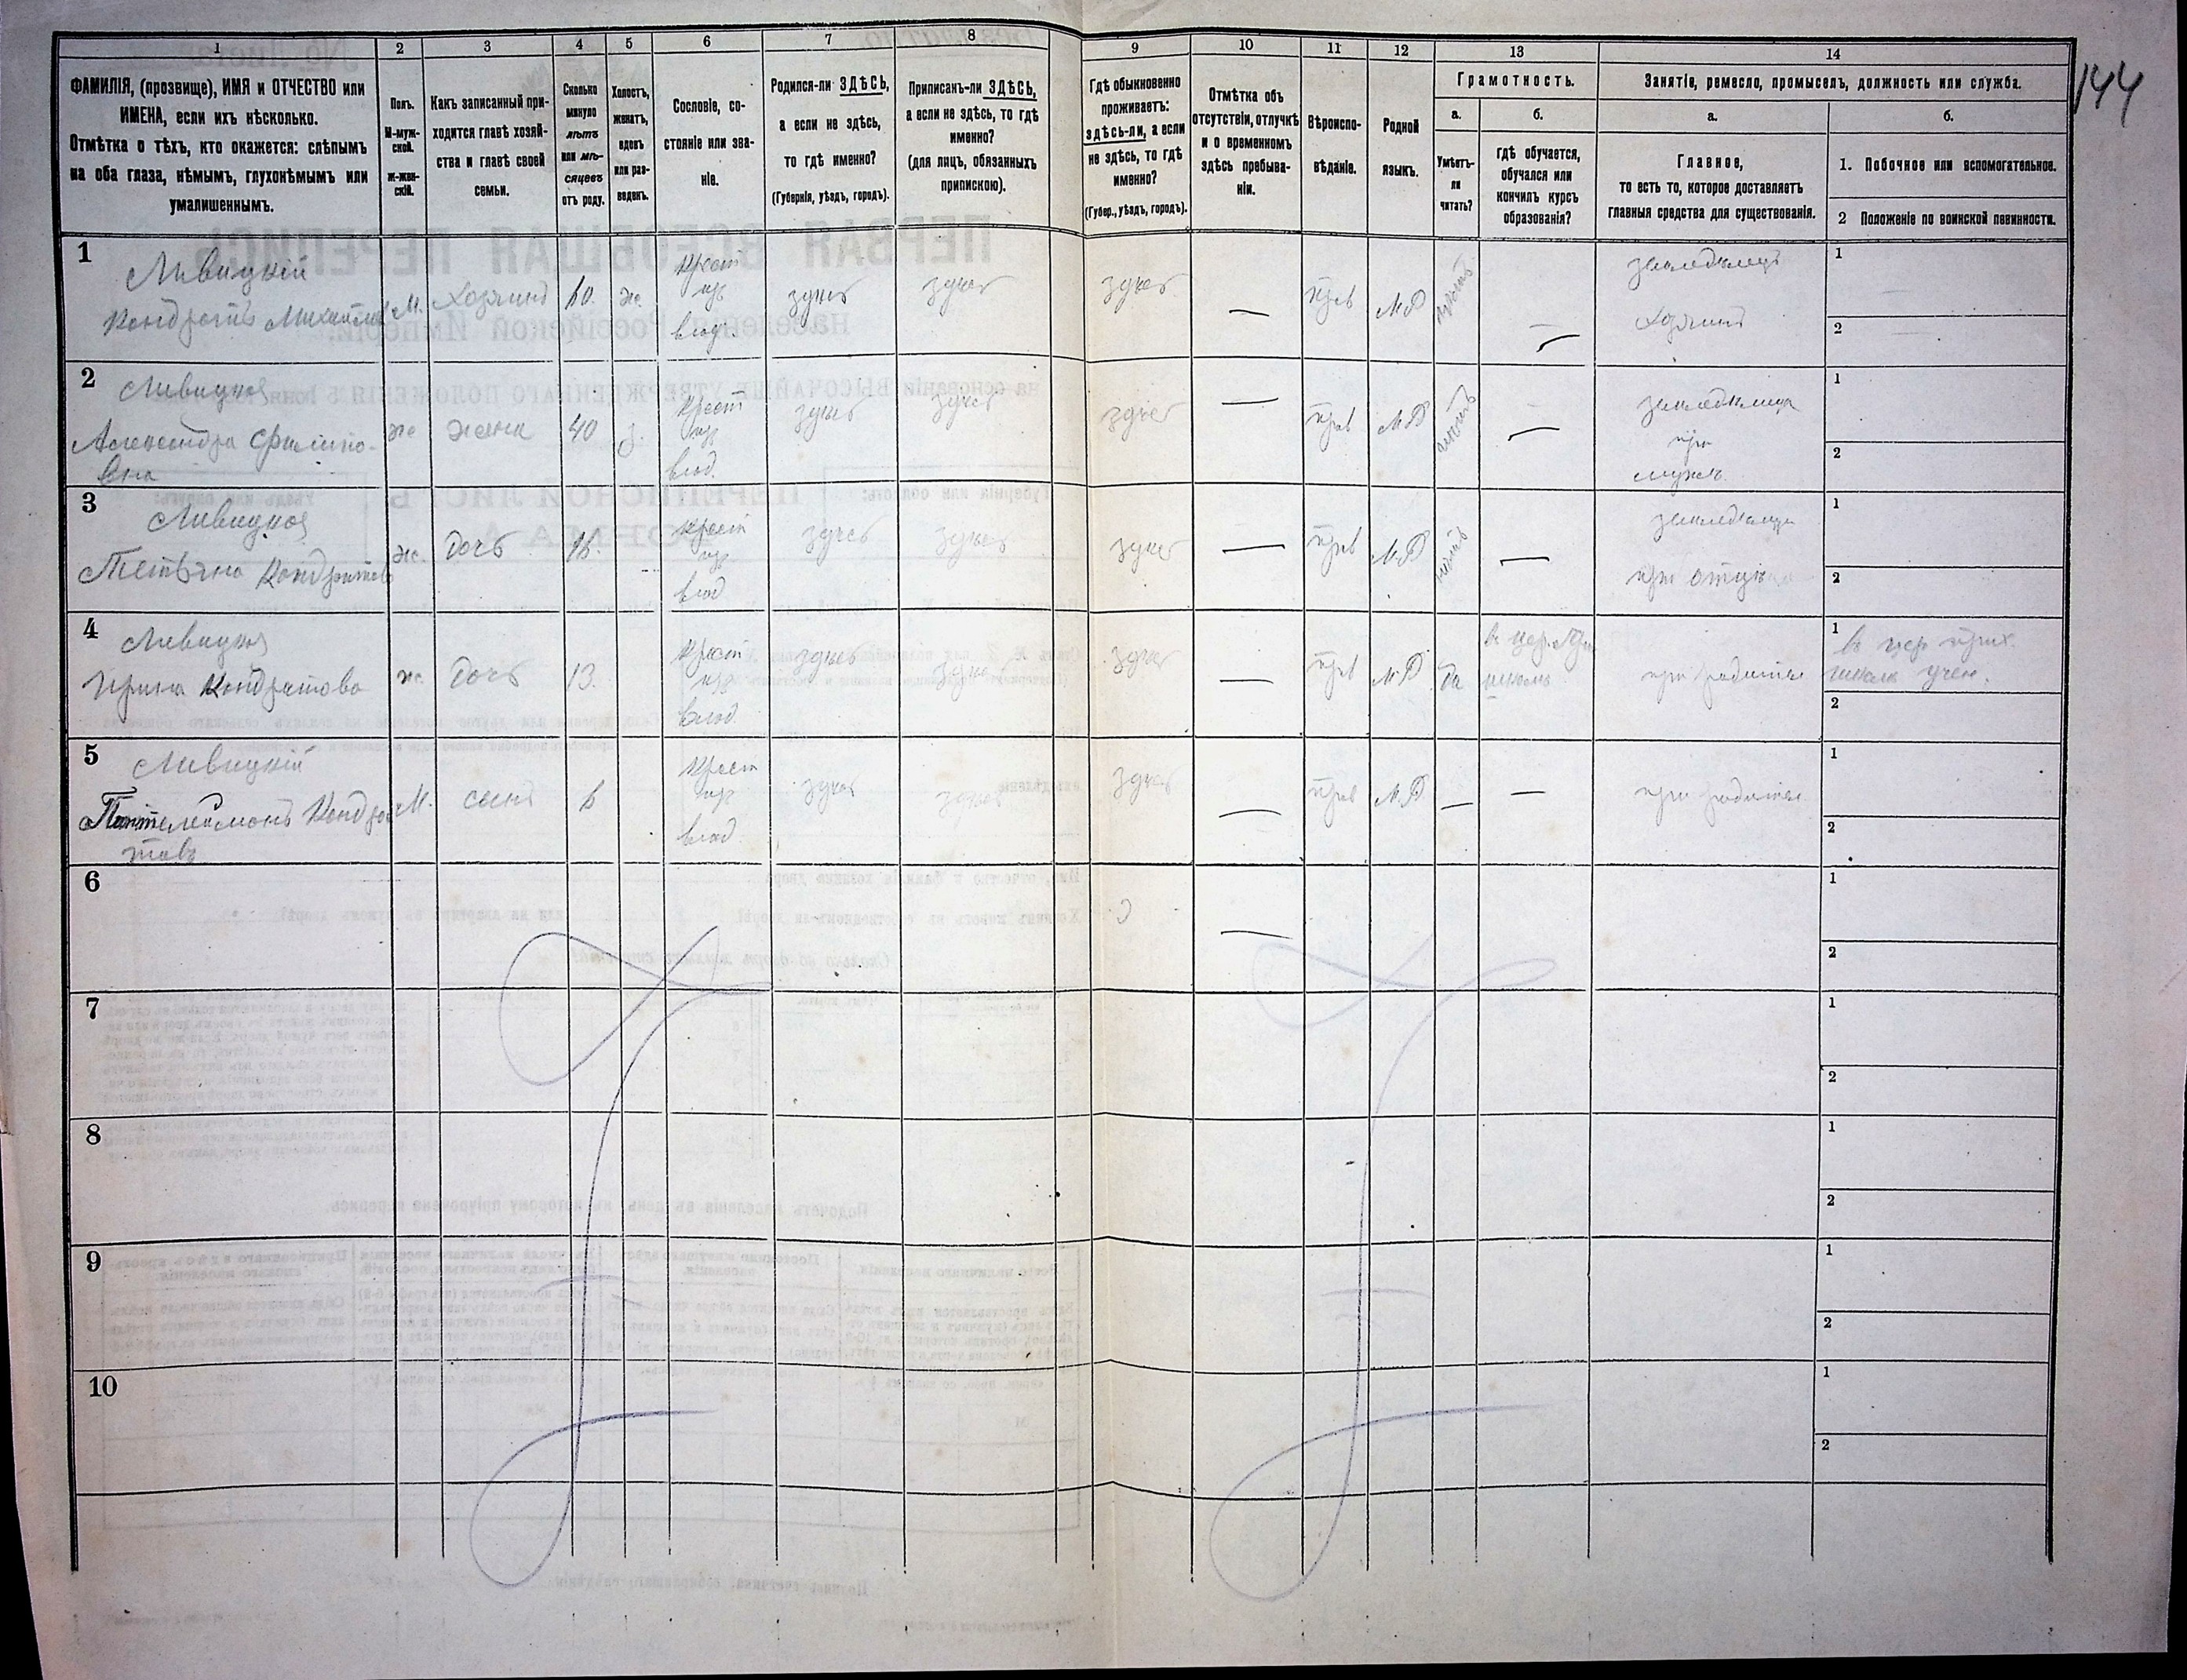 144
1 2 3 4 5 6 7 8 9 10 11 12 13 14
ФАМИЛІЯ, (прозвище), ИМЯ и ОТЧЕСТВО или
ИМЕНА, если ихъ нѣсколько.
Отмѣтка о тѣхъ, кто окажется: слѣпымъ
на оба глаза, нѣмымъ, глухонѣмымъ или
умалишеннымъ.
Полъ.
М-муж-
ской.
Ж-жен-
скій.
Какъ записанный при-
ходится главѣ хозяй-
ства и главѣ своей
семьи.
Сколько
минуло
лѣтъ
или мѣ-
сяцевъ
отъ роду.
Холостъ,
женатъ,
вдовъ
или раз-
веденъ.
Сословіе, со-
стояніе или зва-
ніе.
Родился-ли ЗДѢСЬ,
а если не здѣсь,
то гдѣ именно?
(Губернія, уѣздъ, городъ).
Приписанъ-ли ЗДѢСЬ,
а если не здѣсь, то гдѣ
именно?
(для лицъ, обязанныхъ
припискою).
Гдѣ обыкновенно
проживаетъ:
здѣсь-ли, а если
не здѣсь, то гдѣ
именно?
(Губер., уѣздъ, городъ).
Отмѣтка объ
отсутствіи, отлучкѣ
и о временномъ
здѣсь пребыва-
ніи.
Вѣроиспо-
вѣданіе.
Родной
языкъ.
Грамотность.
а.
Умѣетъ-
ли
читать?
б.
гдѣ обучается,
обучался или
кончилъ курсъ
образованія?
Занятіе, ремесло, промыселъ, должность или служба.
а.
Главное,
то есть то, которое доставляетъ
главныя средства для существованія.
б.
1. Побочное или вспомогательное.
2 Положеніе по воинской повинности.
1
Ливицкій
Кондратъ Михайловъ
М.
Хозяинъ
60.
ж.
крест
изъ
влад.
здѣсь
здѣсь
здѣсь
—
прав
М.Р
—
земледѣлецъ
Хозяинъ
1
2
2
Ливицкая
Александра Филипо-
вна
ж
жена
40
з.
крест
изъ
влад.
здѣсь
здѣсь
здѣсь
—
прав
М.Р
—
земледѣлица
при
мужѣ
1
2
3
Ливицкая
Татьяна Кондратова
ж.
дочь
16.
крест
изъ
влад
здѣсь
здѣсь
здѣсь
—
прав
М.Р
—
земледѣлица
при отцѣ
1
2
4
Ливицкая
Ирина Кондратова
ж.
дочь
13.
крест
изъ
влад.
здѣсь
здѣсь
здѣсь
—
прав
М.Р.
да
въ цер. прих
школѣ
при родител
1
въ цер прих.
школѣ учен.
2
5
Ливицкій
Пантелеимонъ Кондра
товъ
М.
сынъ
6
крест
изъ
влад.
здѣсь
здѣсь
здѣсь
—
прав
М.Р
—
—
при родител.
1
2
6
—
1
2
7
1
2
8
1
2
9
1
2
10
1
2